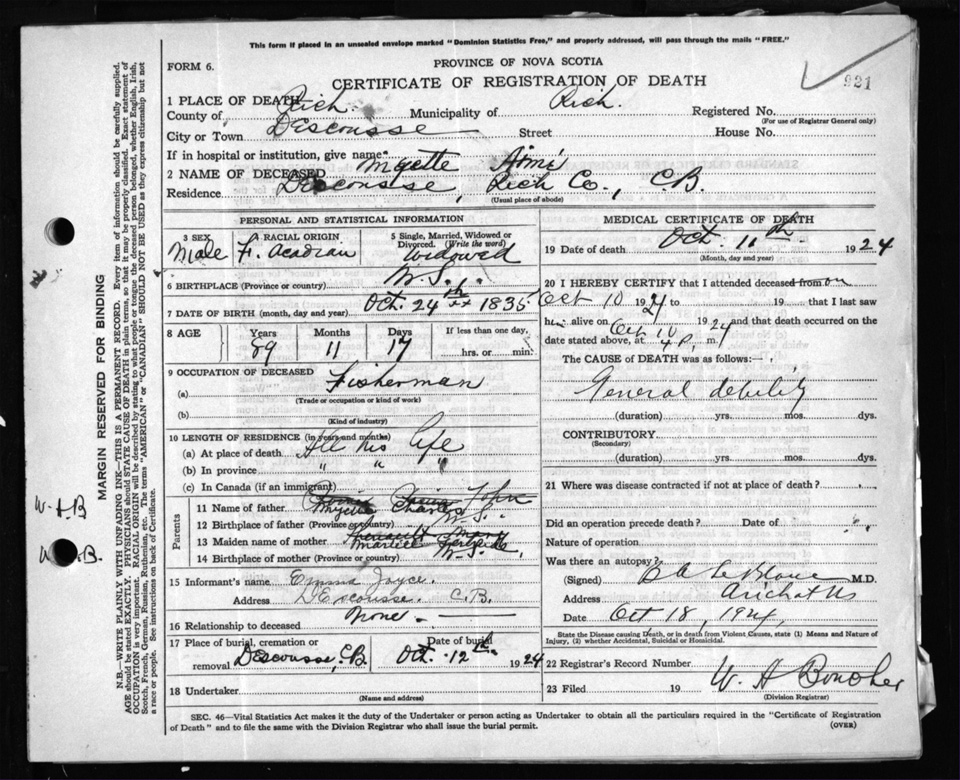 This form if placed in an unsealed envelope marked "Dominion Statistics Free," and properly addressed, will pass through the mails "FREE."
FORM 6.
PROVINCE OF NOVA SCOTIA
CERTIFICATE OF REGISTRATION OF DEATH
921
1 PLACE OF DEATH
County of Rich. Municipality of Rich. Registered No.
(For use of Registrar General only)
City or Town Descousse Street House No.
If in hospital or institution, give name
2 NAME OF DECEASED Myette Aimi
Residence Descousse, Rich Co., C.B.
(Usual place of abode)
PERSONAL AND STATISTICAL INFORMATION
3 SEX RACIAL ORIGIN 5 Single, Married, Widowed or Divorced. (Write the word)
Male F. Acadian Widowed
6 BIRTHPLACE (Province or country) N.S.
7 DATE OF BIRTH (month, day and year) Oct. 24th 1835
8 AGE Years Months Days If less than one day,
89 11 17 hrs. or min.
9 OCCUPATION OF DECEASED
(a) Fisherman
(Trade or occupation or kind of work)
(b)
(Kind of industry)
10 LENGTH OF RESIDENCE (in years and months)
(a) At place of death All his life
(b) In province " " "
(c) In Canada (if an immigrant)
Parents
11 Name of father Myette Charles John
12 Birthplace of father (Province or country) N.S.
13 Maiden name of mother
14 Birthplace of mother (Province or country) N.S.
15 Informant's name Emma Joyce.
Address D'Escousse. C.B.
16 Relationship to deceased None.
17 Place of burial, cremation or removal Descousse, C.B. Date of burial Oct. 12th 1924
18 Undertaker
(Name and address)
MEDICAL CERTIFICATE OF DEATH
19 Date of death Oct. 11th 1924
(Month, day and year)
20 I HEREBY CERTIFY that I attended deceased from on
Oct 10 1924 to 19 that I last saw
him alive on Oct 10 1924 and that death occurred on
date stated above, at 4 P. m.
The CAUSE of DEATH was as follows:
General debility
(duration) yrs. mos. dys.
CONTRIBUTORY
(Secondary)
(duration) yrs. mos. dys.
21 Where was disease contracted if not at place of death?
Did an operation precede death? Date of
Nature of operation
Was there an autopsy?
(Signed) B A LeBlanc M.D.
Address Arichat NS
Date Oct 18, 1924
State the Disease causing Death, or in death from Violent Causes, state (1) Means and Nature of Injury, (2) whether Accidental, Suicidal or Homicidal.
22 Registrar's Record Number
23 Filed 19 W. A
(Division Registrar)
SEC. 46—Vital Statistics Act makes it the duty of the Undertaker or person acting as Undertaker to obtain all the particulars required in the "Certificate of Registration
of Death" and to file the same with the Division Registrar who shall issue the burial permit.
(OVER)
MARGIN RESERVED FOR BINDING
N.B.—WRITE PLAINLY WITH UNFADING INK—THIS IS A PERMANENT RECORD. Every item of information should be carefully supplied.
AGE should be stated EXACTLY. PHYSICIANS should STATE CAUSE OF DEATH in plain terms, so that it may be properly classified. Exact statement of
OCCUPATION is very important. RACIAL ORIGIN will be described by stating to what people or tongue the deceased person belonged, whether English, Irish,
Scotch, French, German, Russian, Ruthenian, etc. The terms "AMERICAN" or "CANADIAN" SHOULD NOT BE USED as they express citizenship but not
a race or people. See instructions on back of Certificate.
W.A.B
W.A.B.